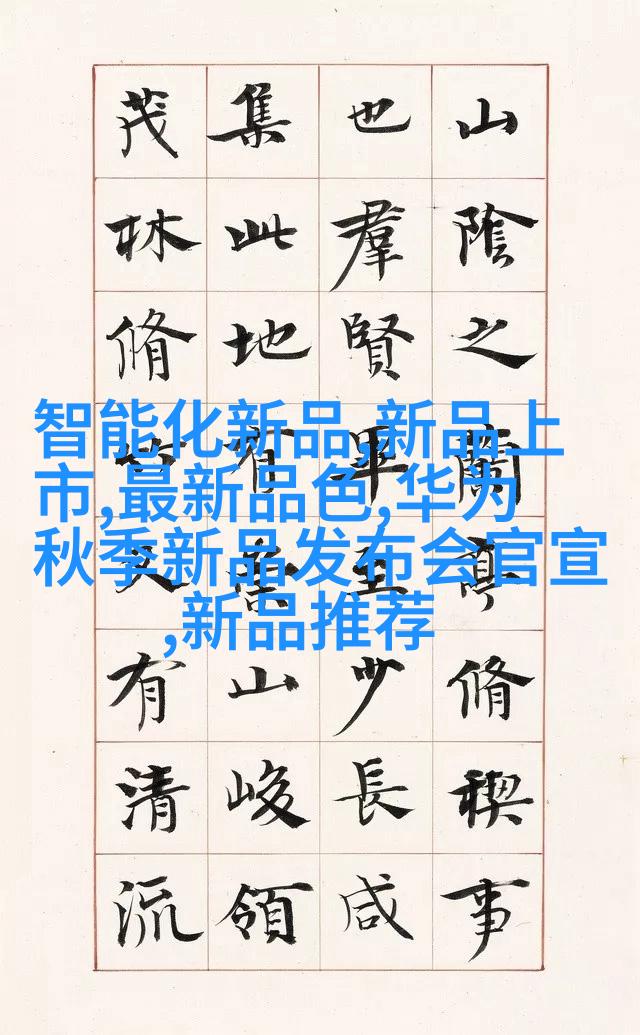 山陰之蘭亭脩稧事
也羣賢畢至少長咸
集此地有崇山峻領
茂林脩竹又有清流
智能化新品,新品上
市,最新品色,华为
秋季新品发布会官宣
,新品推荐